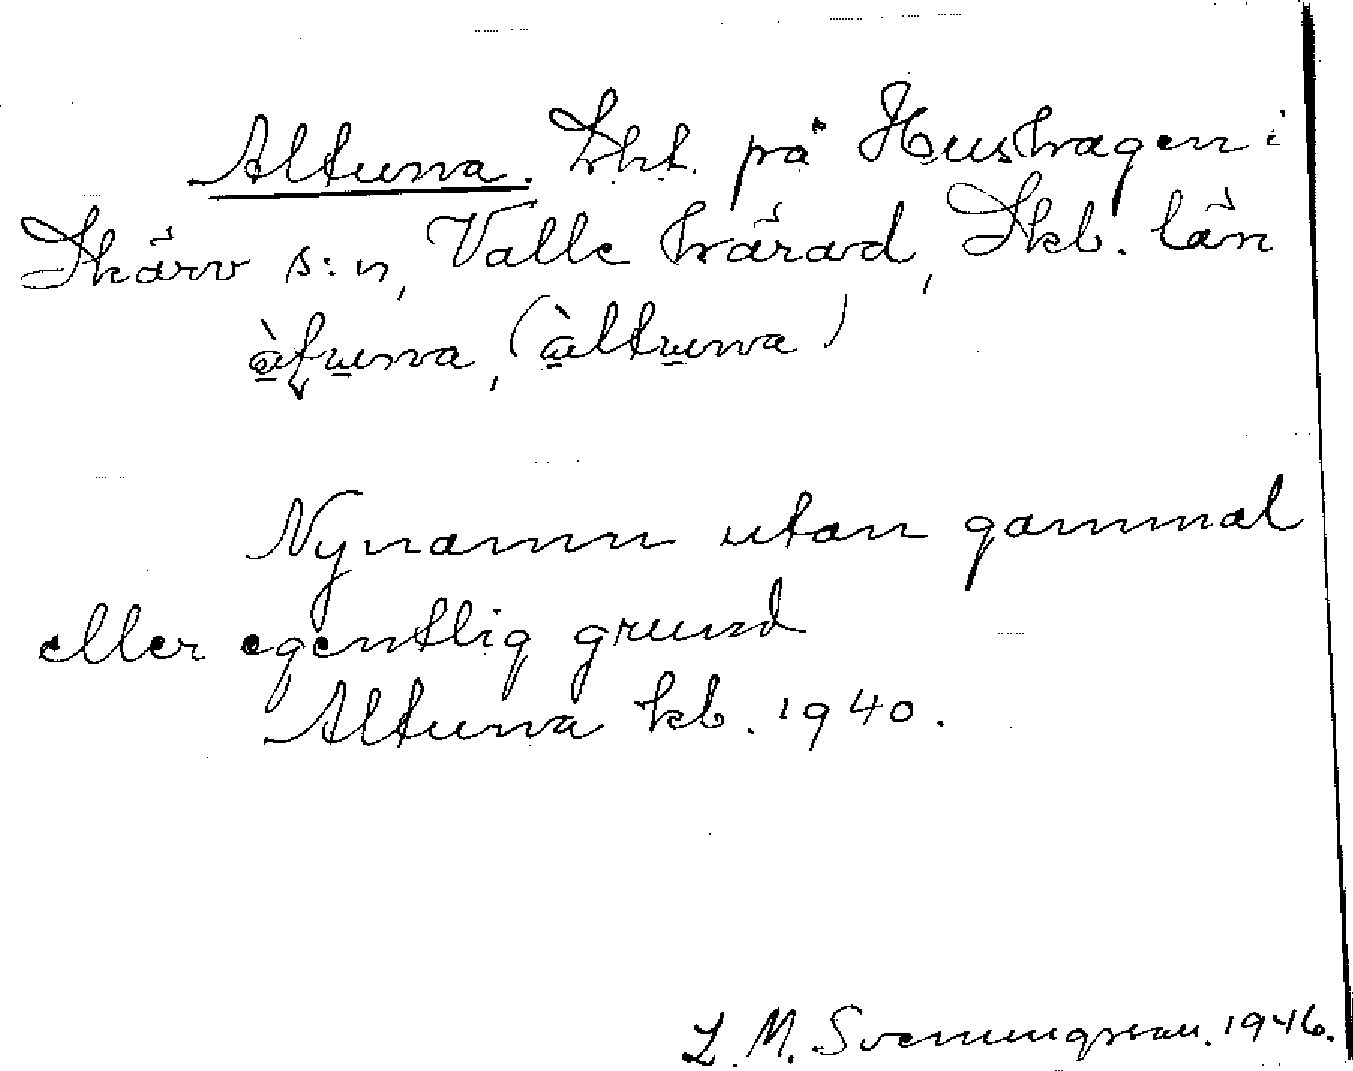 Altuna. Lht. på Hushagen i
Skärv s:n, Valle härad, Skb. län
àtuna, (àltuna)
Nynamn utan gammal
eller egentlig grund
Altuna kb. 1940.
L. M. Svenungsson. 1946.